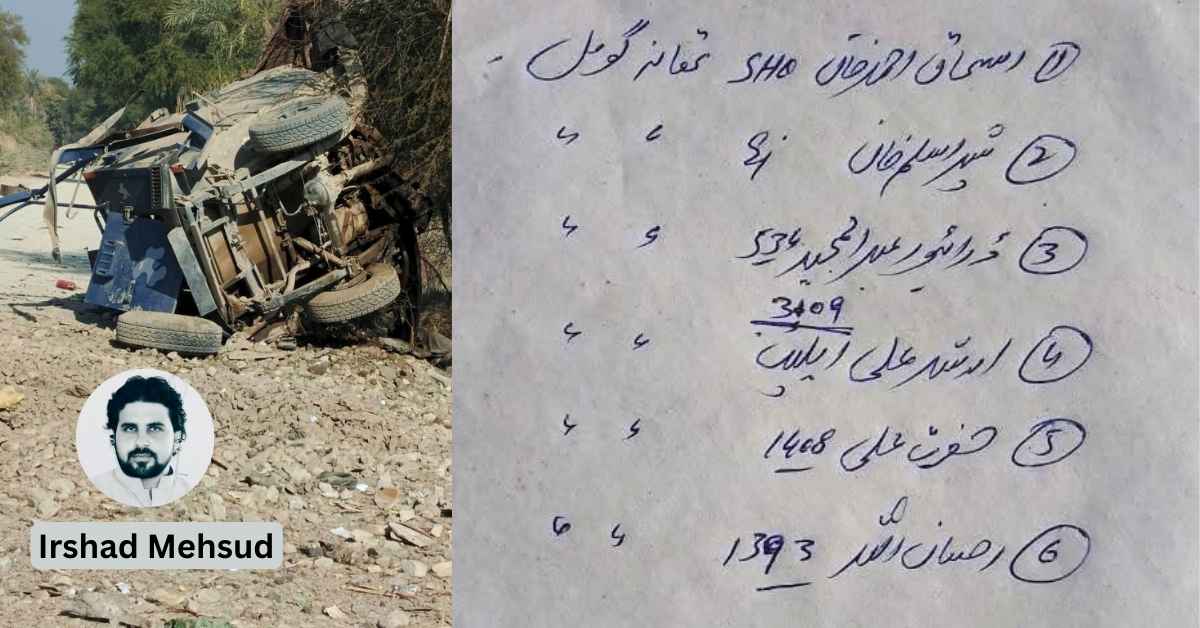 ① اسحاق احمد خان SHO تھانہ گومل -
② شیر اسلم خان 〃 〃
③ ڈرائیور عبدالمجید 534 〃 〃
3109
④ ارشد علی ایلیٹ 〃 〃
⑤ حضرت علی 1408 〃 〃
⑥ احسان اللہ 1393 〃 〃
Irshad Mehsud